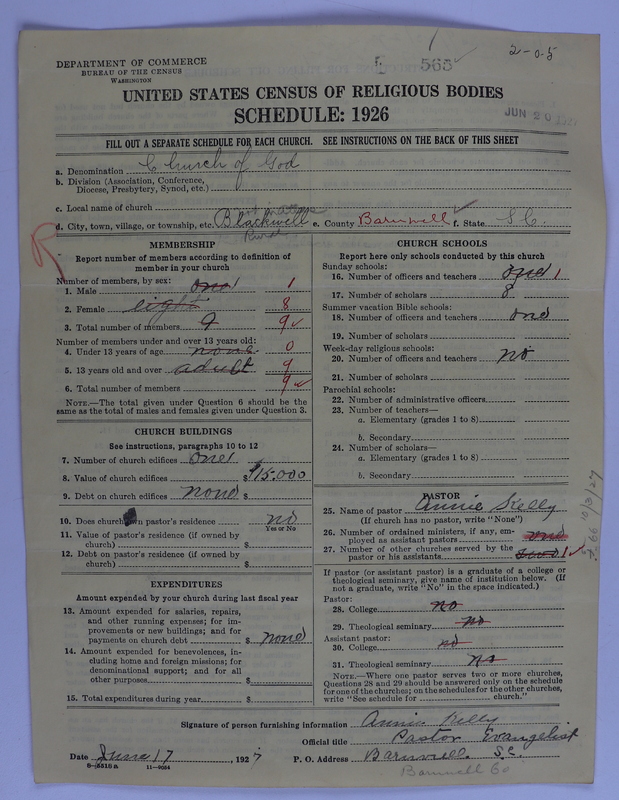 DEPARTMENT OF COMMERCE
BUREAU OF THE CENSUS
WASHINGTON
565
2-0-5
UNITED STATES CENSUS OF RELIGIOUS BODIES
SCHEDULE: 1926
JUN 20 1927
FILL OUT A SEPARATE SCHEDULE FOR EACH CHURCH. SEE INSTRUCTIONS ON THE BACK OF THIS SHEET
a. Denomination Church of God
b. Division (Association, Conference,
Diocese, Presbytery, Synod, etc.)
c. Local name of church
d. City, town, village, or township, etc. Blackwell e. County Barnwell f. State S C.
Rural
R
MEMBERSHIP
Report number of members according to definition of
member in your church
Number of members, by sex:
1. Male one 1 1
2. Female eight 8
3. Total number of members 9 9
Number of members under and over 13 years old:
4. Under 13 years of age none 0
5. 13 years old and over adult 9
6. Total number of members 9
NOTE.—The total given under Question 6 should be
same as the total of males and females given under Question 3.
CHURCH BUILDINGS
See instructions, paragraphs 10 to 12
7. Number of church edifices one
8. Value of church edifices $ $15.000
9. Debt on church edifices none $
10. Does church own pastor's residence no
Yes or No
11. Value of pastor's residence (if owned by
church) $
12. Debt on pastor's residence (if owned by
church) $
EXPENDITURES
Amount expended by your church during last fiscal year
13. Amount expended for salaries, repairs,
and other running expenses; for im-
provements or new buildings; and for
payments on church debt $ none
14. Amount expended for benevolences, in-
cluding home and foreign missions; for
denominational support; and for all
other purposes $
15. Total expenditures during year $
CHURCH SCHOOLS
Report here only schools conducted by this church
Sunday schools:
16. Number of officers and teachers one 1
17. Number of scholars 8
Summer vacation Bible schools:
18. Number of officers and teachers one
19. Number of scholars
Week-day religious schools:
20. Number of officers and teachers no
21. Number of scholars
Parochial schools:
22. Number of administrative officers
23. Number of teachers—
a. Elementary (grades 1 to 8)
b. Secondary
24. Number of scholars—
a. Elementary (grades 1 to 8)
b. Secondary
PASTOR
25. Name of pastor Annie Kelly
(If church has no pastor, write "None")
26. Number of ordained ministers, if any, em-
ployed as assistant pastors one
27. Number of other churches served by the
pastor or his assistants two 1
If pastor (or assistant pastor) is a graduate of a college or
theological seminary, give name of institution below. (If
not a graduate, write "No" in the space indicated.)
Pastor:
28. College no
29. Theological seminary no
Assistant pastor:
30. College no
31. Theological seminary no
NOTE.—Where one pastor serves two or more churches,
Questions 28 and 29 should be answered only on the schedule
for one of the churches; on the schedules for the other churches,
write "See schedule for church."
10/3/27
Signature of person furnishing information Annie Kelly
Official title Pastor Evangelist
Date June 17, 1927 P. O. Address Barnwell S.C.
8—5516 a 11—9054
Barnwell Co